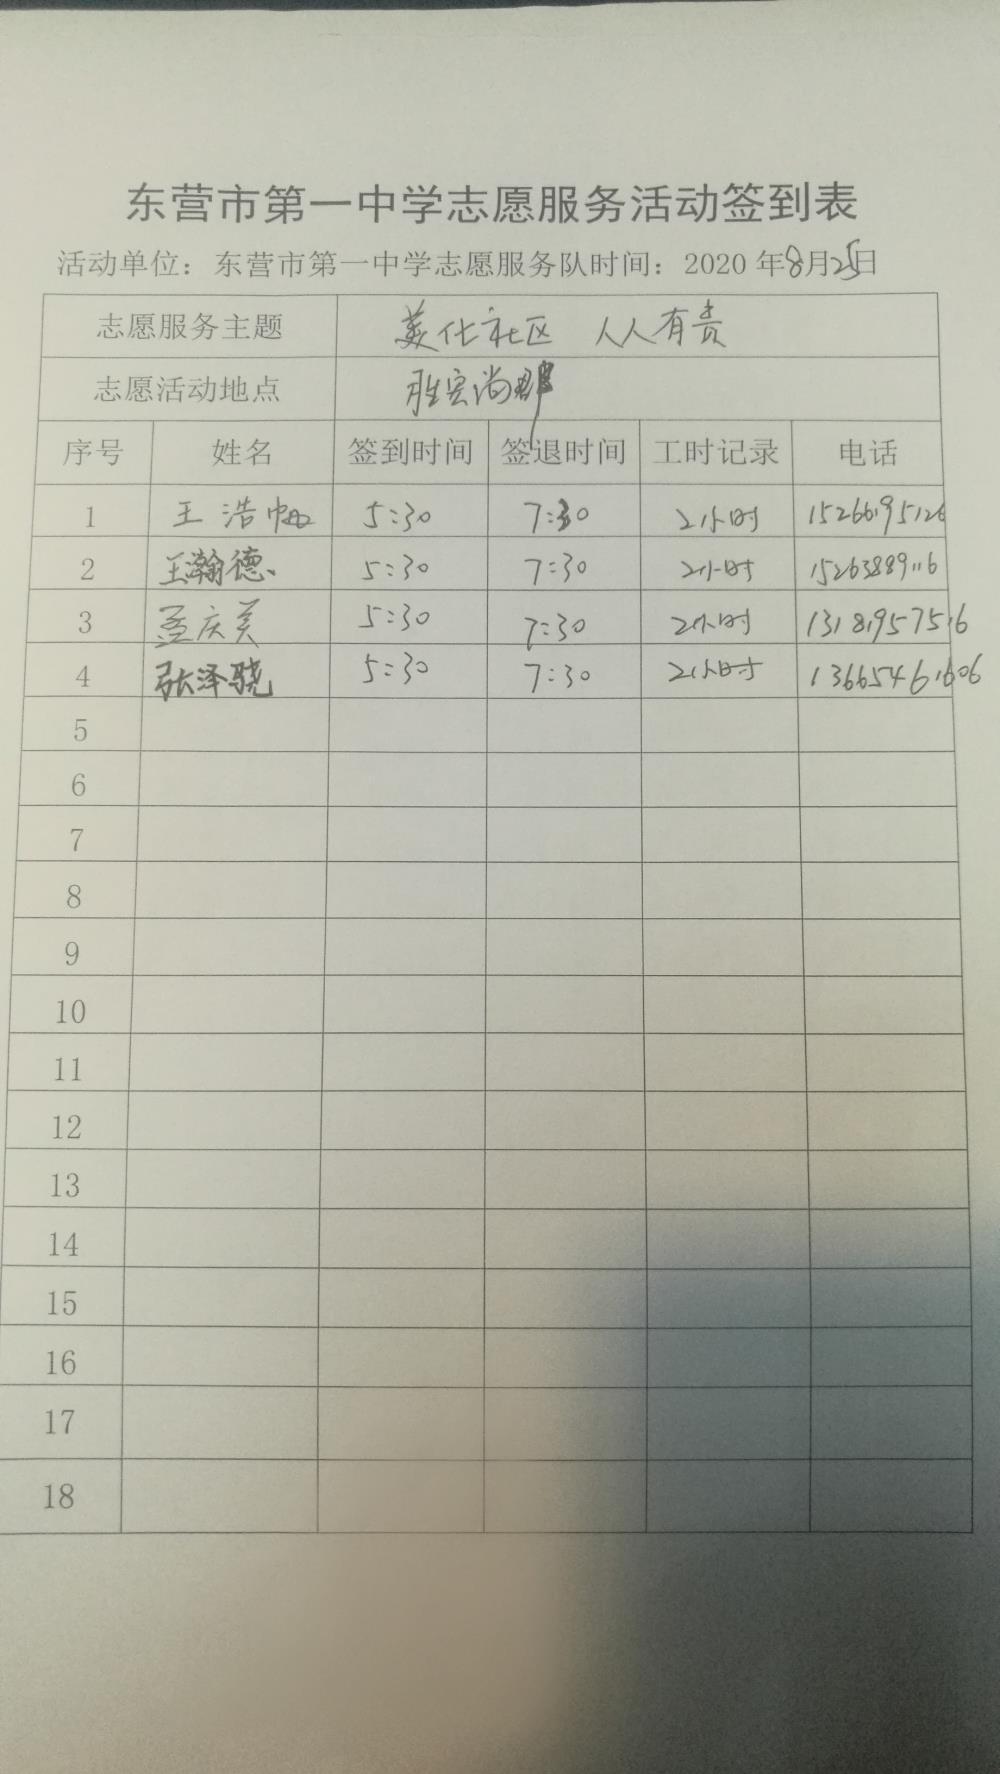 东营市第一中学志愿服务活动签到表
活动单位：东营市第一中学志愿服务队时间：2020年8月25日
志愿服务主题 美化社区 人人有责
志愿活动地点 胜宏尚郡
序号 姓名 签到时间 签退时间 工时记录 电话
1 王浩 5:30 7:30 2小时 15266195126
2 王瀚德 5:30 7:30 2小时 15263889116
3 孟庆美 5:30 7:30 2小时 13181957516
4 张泽骁 5:30 7:30 2小时 13665461606
5
6
7
8
9
10
11
12
13
14
15
16
17
18